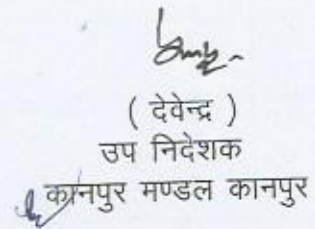 ( देवेन्द्र )
उप निदेशक
कानपुर मण्डल कानपुर